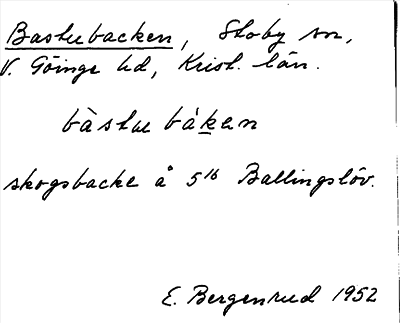 Bastubacken, Stoby sn,
V. Göinge hd, Krist. län.
bàstu bákan
skogsbacke å 5¹⁶ Ballingslöv.
E. Bergenrud 1952